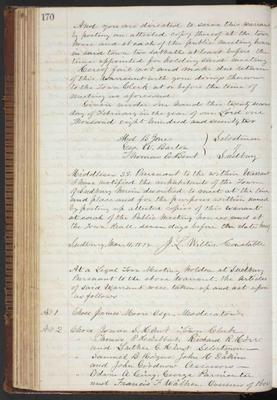 170
And you are directed to serve this warrant
by posting an attested copy thereof at the town
house and at each of the public meeting houses
in said town two sabbaths at least before the
time appointed for holding said meeting
Hereof fail not and make due return
of this warrant with your doings thereon
to the Town Clerk at or before the time of
meeting as aforesaid.
Given under our hands this twenty seven
day of February in the year of our Lord one
thousand eight hundred and seventy two
B. Jones
Geo. A. Barton
Thomas P. Hurlbut
Selectmen
of
Sudbury
Middlesex SS. Pursuant to the within Warrant
I have notified the inhabitants of the Town
of Sudbury herein named to meet at the time
and place and for the purposes within named
by posting up attested copies of this warrant
at each of the Public Meeting houses and at
the Town Hall seven days before the date
Sudbury Mar. 1872 J. L. Willis Constable
At a Legal Town Meeting, Holden at Sudbury
Pursuant to the above Warrant, the Articles
of Said Warrant were taken up and act upon
as follows
Art 1 Chose James Moore Esq. Moderator
Art 2 Chose Jonas S. Hunt Town Clerk
James P. Hurlbut Richard R.
and Luther C. Selectmen
Samuel B. Rogers John H. Dakin
and John Goodnow Assessors
Edwin A. George Parmenter
and Francis F. Walker Overseers of Poor